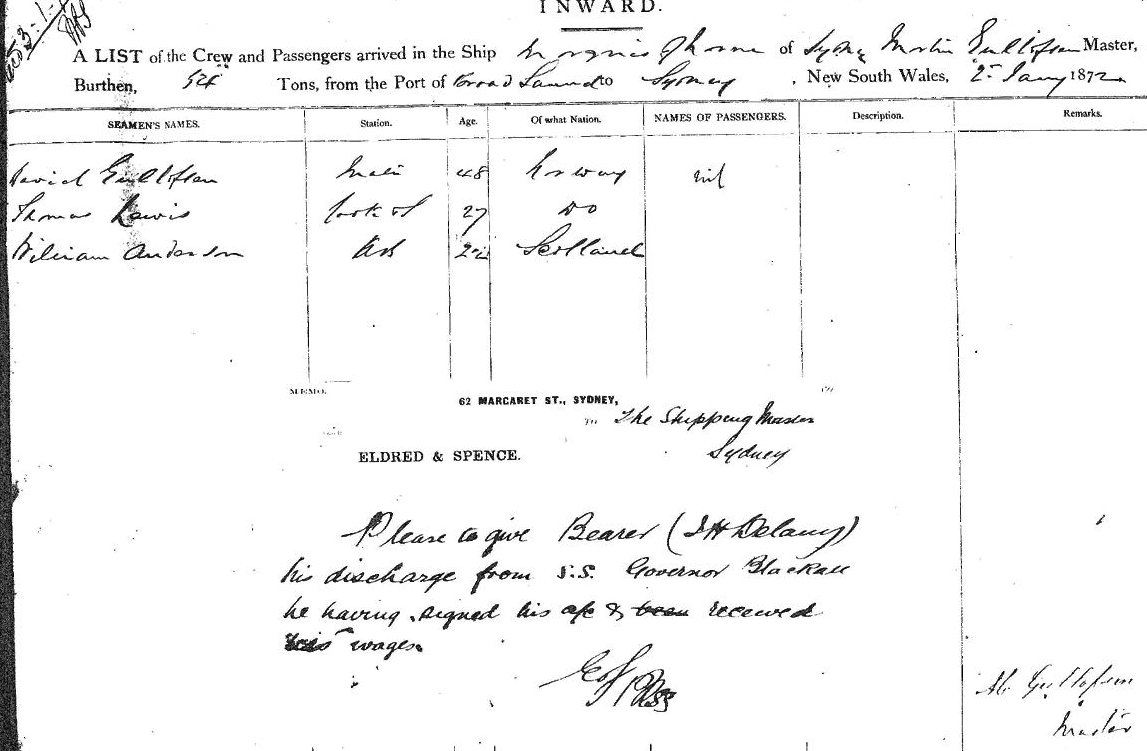 INWARD.
A LIST of the Crew and Passengers arrived in the Ship Marquis of Lorne of Sydney Martin Gullofsen Master,
Burthen, 54 Tons, from the Port of Broad Sound to Sydney, New South Wales, 2nd Jany 1872
SEAMEN'S NAMES. Station. Age. Of what Nation. NAMES OF PASSENGERS. Description. Remarks.
David Gullofsen Mate 48 Norway nil
Thomas Lewis Cook 27 Do
William Anderson AB 22 Scotland
MEMO.
62 MARGARET ST., SYDNEY,
To The Shipping Master
Sydney
ELDRED & SPENCE.
Please to give Bearer (J H Delany)
his discharge from S.S. Governor Blackall
he having signed his a/c & been received
his wages.
M. Gullofsen
Master